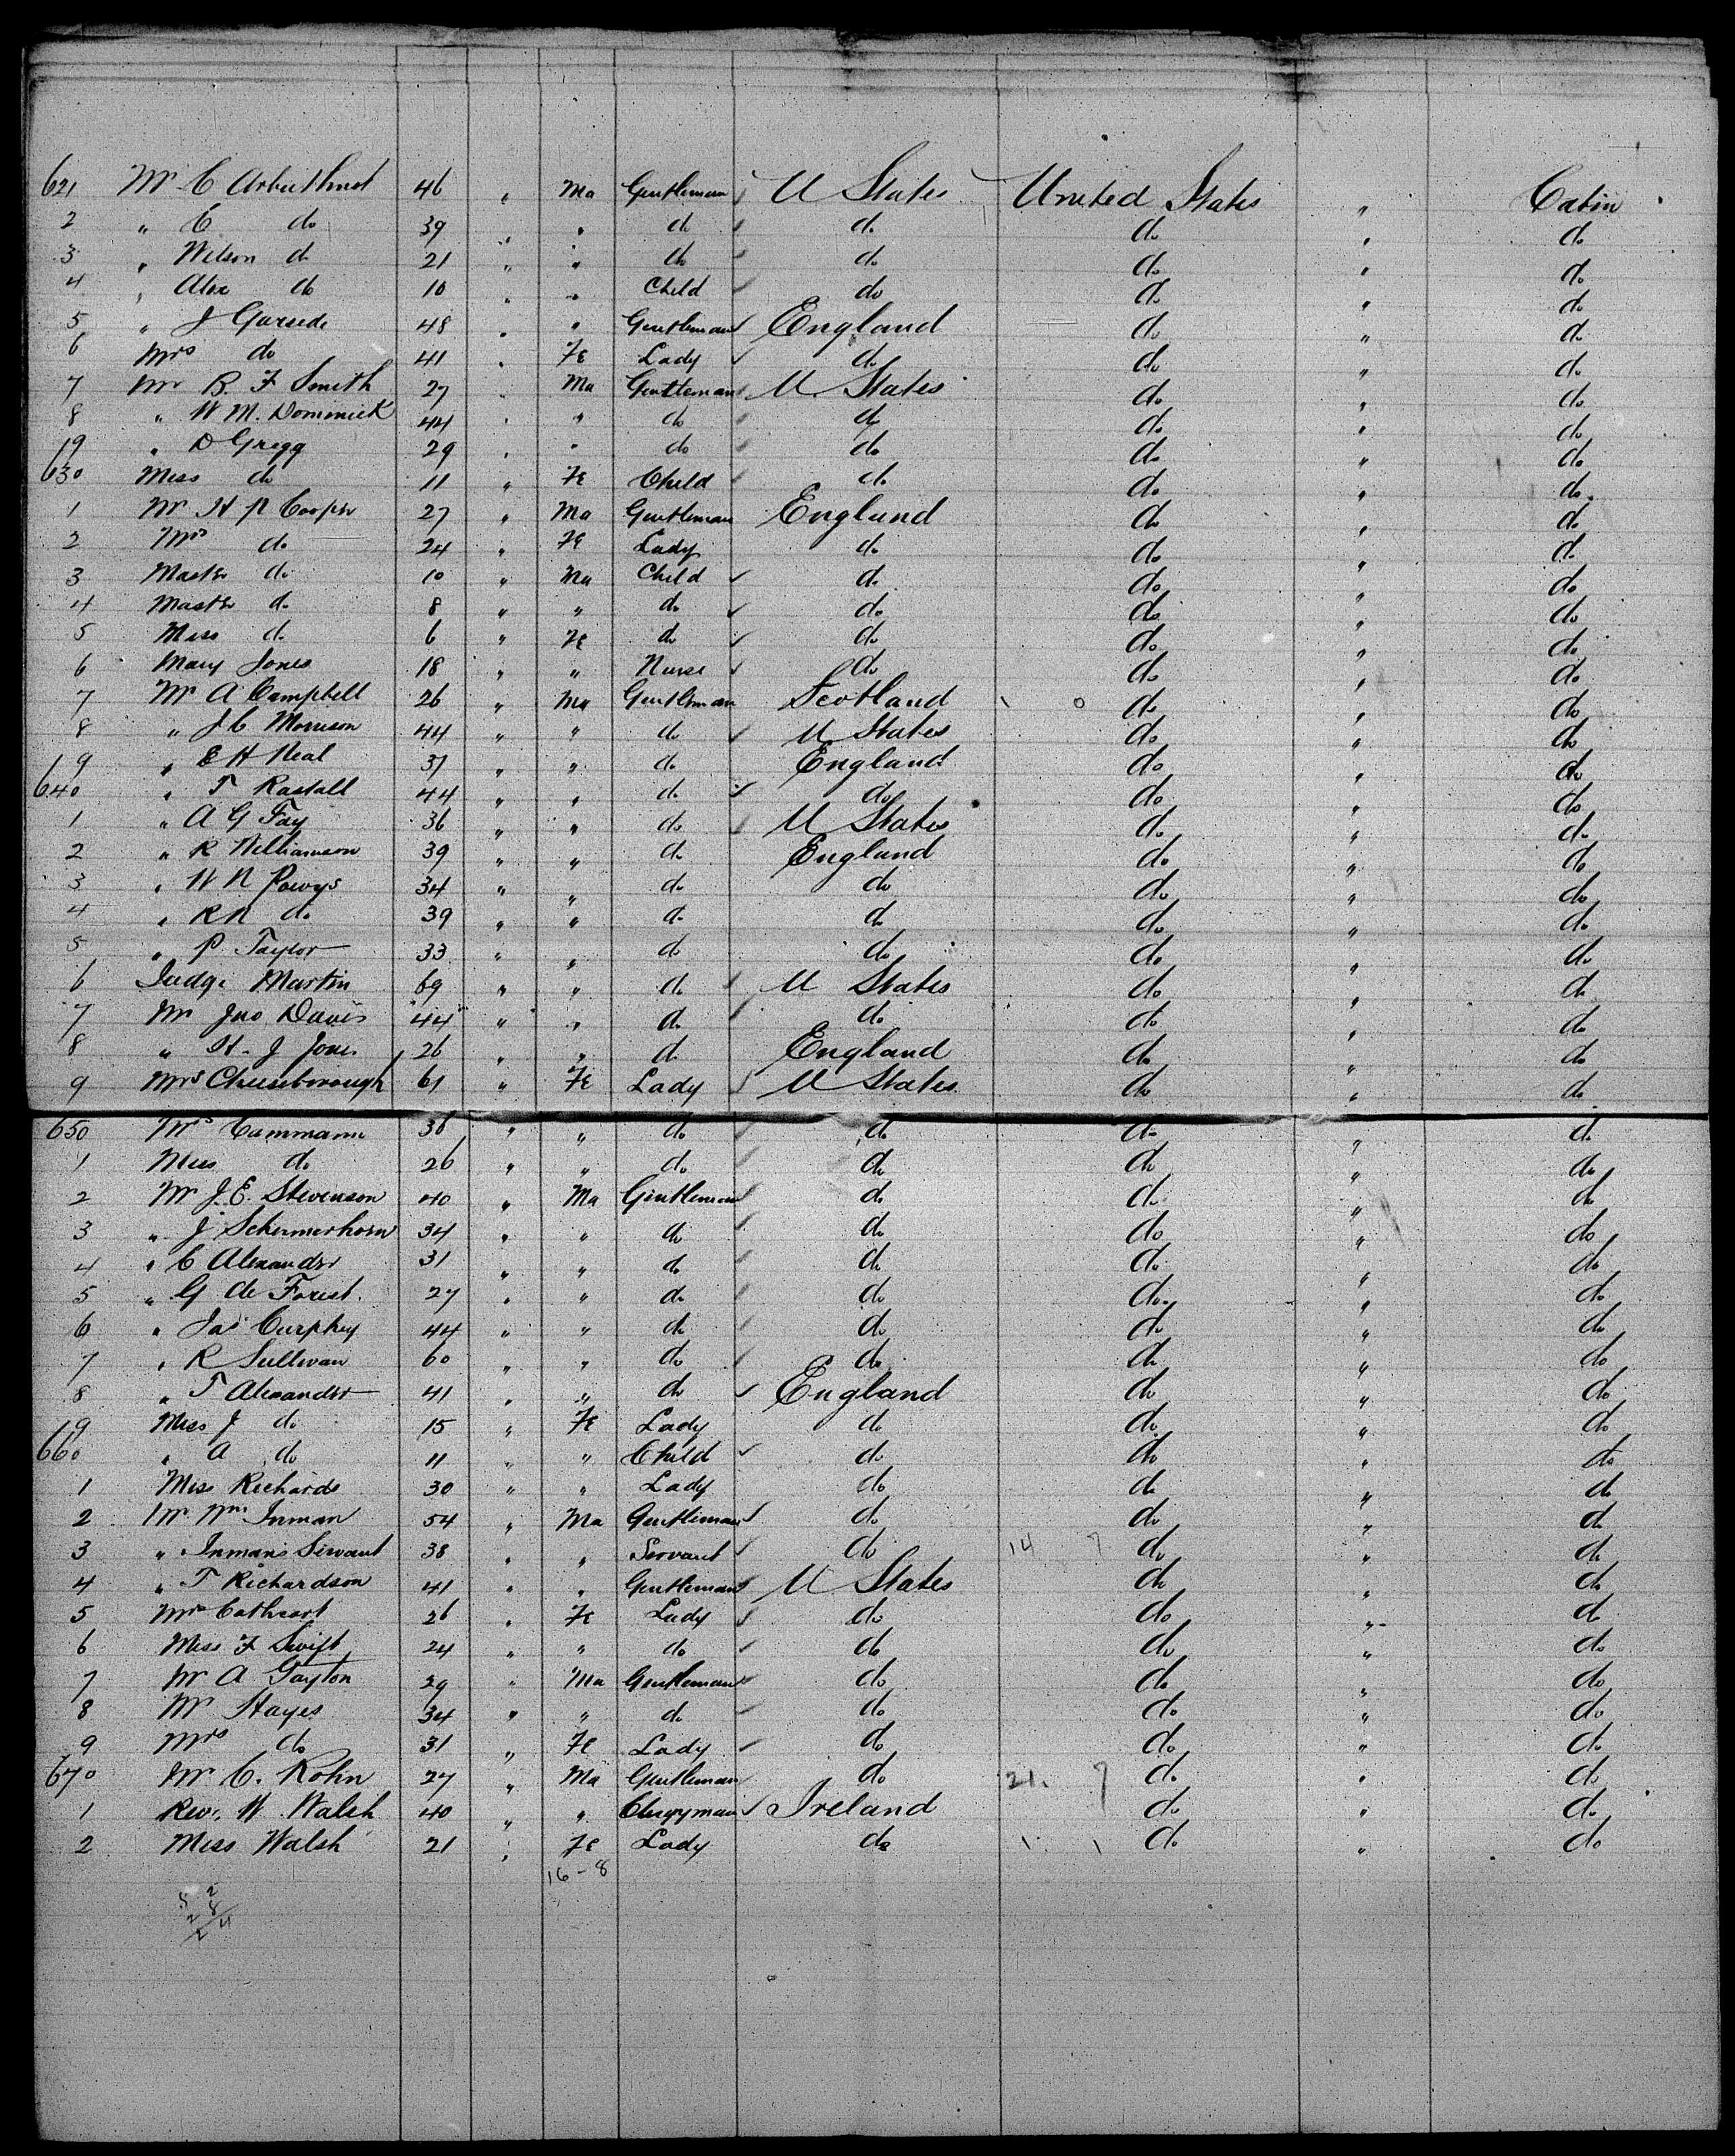 621 Mr C Arbuthnot 46 " Ma Gentleman U States United States " Cabin
2 " C do 39 " " do do do " do
3 " Wilson do 21 " " do do do " do
4 " Alex do 10 " " Child do do " do
5 " J Garside 48 " " Gentleman England do " do
6 Mrs do 41 " Fe Lady do do " do
7 Mr B. F Smith 27 " Ma Gentleman U States do " do
8 " W M. Dominick 44 " " do do do " do
9 " D Gregg 29 " " do do do " do
630 Miss do 11 " Fe Child do do " do
1 Mr H N Cooper 27 " Ma Gentleman England do " do
2 Mrs do 24 " Fe Lady do do " do
3 Master do 10 " Ma Child do do " do
4 Master do 8 " " do do do " do
5 Miss do 6 " Fe do do do " do
6 Mary Jones 18 " " Nurse do do " do
7 Mr A Campbell 26 " Ma Gentleman Scotland do " do
8 " J C Morrison 44 " " do U States do " do
9 " E H Neal 37 " " do England do " do
640 " T Rastall 44 " " do do do " do
1 " A G Fay 36 " " do U States do " do
2 " R Williamson 39 " " do England do " do
3 " W N Powys 34 " " do do do " do
4 " R N do 39 " " do do do " do
5 " P Taylor 33 " " do do do " do
6 Judge Martin 69 " " do U States do " do
7 Mr Jno Davis 44 " " do do do " do
8 " H. J Jones 26 " " do England do " do
9 Mrs Cheeseborough 61 " Fe Lady U States do " do
650 Mrs Cammann 36 " " do do do " do
1 Miss do 26 " " do do do " do
2 Mr J. E. Stevenson 40 " Ma Gentleman do do " do
3 " J Schermerhorn 34 " " do do do " do
4 " C Alexander 31 " " do do do " do
5 " G de Forest. 27 " " do do do " do
6 " Jas Curphey 44 " " do do do " do
7 " R Sullivan 60 " " do do do " do
8 " T Alexander 41 " " do England do " do
9 Miss J do 15 " Fe Lady do do " do
660 " A do 11 " " Child do do " do
1 Miss Richards 30 " " Lady do do " do
2 Mr Wm Inman 54 " Ma Gentleman do do " do
3 " Inman's Servant 38 " " Servant do 14 7 do " do
4 " T Richardson 41 " " Gentleman U States do " do
5 Mrs Cathcart 26 " Fe Lady do do " do
6 Miss F Swift 24 " " do do do " do
7 Mr A Gayton 29 " Ma Gentleman do do " do
8 Mr Hayes 34 " " do do do " do
9 Mrs do 31 " Fe Lady do do " do
670 Mr C. Rohn 27 " Ma Gentleman do 21. 7 do " do
1 Rev. W. Walsh 40 " " Clergyman Ireland do " do
2 Miss Walsh 21 " Fe Lady do 1. 1 do " do
16-8